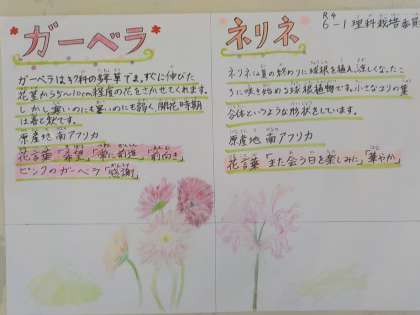 ガーベラ
ガーベラはキク科の多年草で、まっすぐに伸びた
花茎から5〜10cm程度の花をさかせてくれます。
しかし寒いのにも暑いのにも弱く、開花時期
は春と秋です。
原産地 南アフリカ
花言葉「希望」「常に前進」「前向き」
ピンクのガーベラ「感謝」
R4
6-1 理科栽培委員
ネリネ
ネリネは夏の終わりに球根を植え、涼しくなったこ
ろに咲き始める球根植物です。小さなユリの集
合体というような形状をしています。
原産地 南アフリカ
花言葉「また会う日を楽しみに」「華やか」